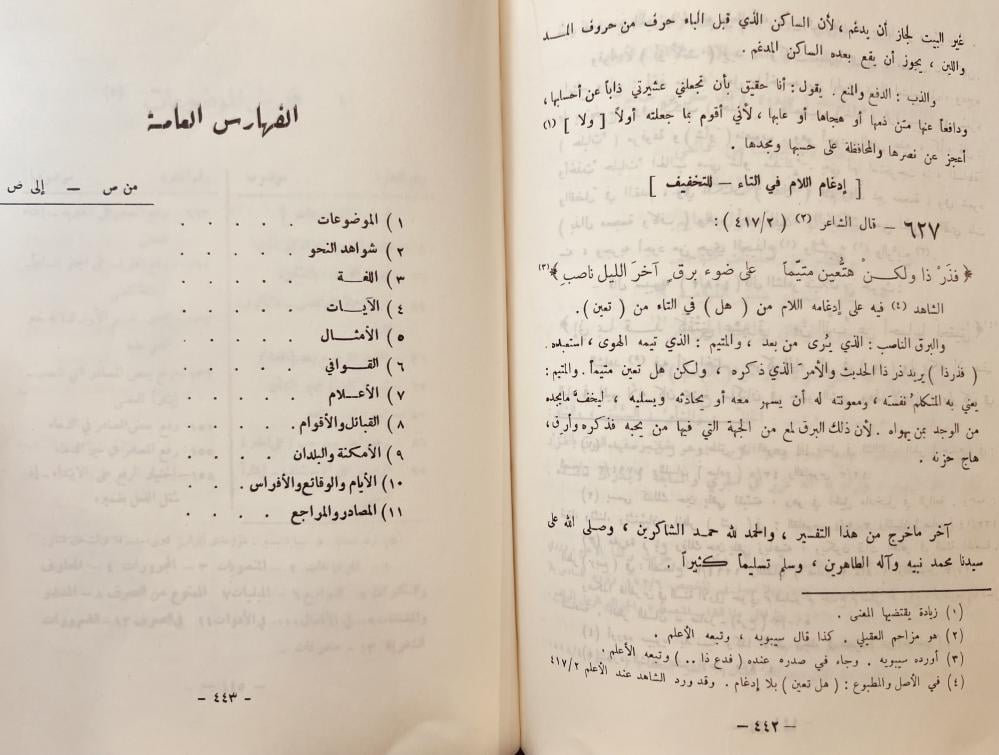 غير البيت لجاز أن يدغم ، لأن الساكن الذي قبل الباء حرف من حروف المـد
واللين ، يجوز أن يقع بعده الساكن المدغم .
والذب : الدفع والمنع . يقول : أنا حقيق بأن تجعلني عشيرتي ذاباً عن أحسابها ،
ودافعاً عنها ممّن ذمها أو هجاها أو عابها ، لأني أقوم بما جعلته أولاً [ ولا ] (١)
أعجز عن نصرها والمحافظة على حسبها ومجدها .
[ إدغام اللام في التاء – للتخفيف ]
٦٢٧ – قال الشاعر (٢) ( ٤١٧/٢ ) :
﴿ فذَرْ ذا ولكنْ هتُّعين متيّماً على ضوء برقٍ آخرَ الليل ناصبِ ﴾ (٣)
الشاهد (٤) فيه على إدغامه اللام من ( هل ) في التاء من ( تعين ) .
والبرق الناصب : الذي يُرى من بعد ، والمتيم : الذي تيمه الهوى ، استعبده .
( فذرذا ) يريد ذر ذا الحديث والأمرَ الذي ذكره ، ولكن هل تعين متيماً . والمتيم :
يعني به المتكلمُ نفسَه ، ومعونته له أن يسهر معه أو يحادثه ويسليه ، ليخفّ مايجده
من الوجد بمن يهواه . لأن ذلك البرق لمع من الجهة التي فيها من يحبه فذكره وأرق ،
هاج حزنه .
آخر ماخرج من هذا التفسير ، والحمد لله حمـد الشاكرين ، وصلى الله على
سيدنا محمد نبيه وآله الطاهرين ، وسلم تسليماً كثيراً .
(١) زيادة يقتضيها المعنى .
(٢) هو مزاحم العقيلي . كذا قال سيبويه ، وتبعه الأعلم .
(٣) أورده سيبويه . وجاء في صدره عنده ( فدع ذا .. ) وتبعه الأعلم .
(٤) في الأصل والمطبوع : ( هل تعين ) بلا إدغام . وقد ورد الشاهد عند الأعلم ٤١٧/٢
– ٤٤٢ –
الفهارس العامـة
من ص – إلى ص
١ ) الموضوعات . . . .
٢ ) شواهد النحو . . . .
٣ ) اللغـة . . . . .
٤ ) الآيـات . . . . .
٥ ) الأمثـال . . . . .
٦ ) القـوافي . . . . .
٧ ) الأعـلام . . . . .
٨ ) القبائل والأقوام . . . .
٩ ) الأمكنة والبلدان . . .
١٠ ) الأيام والوقائع والأفراس . .
١١ ) المصادر والمراجع . . . .
- ٤٤٣ -